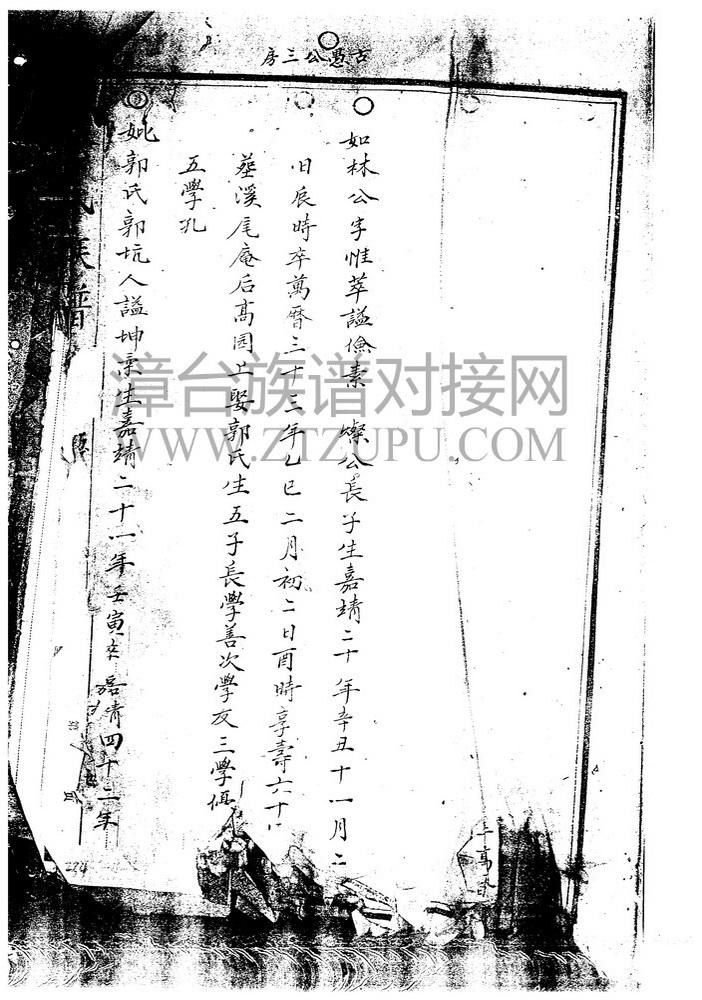 古愚公三房
如林公字惟萃謚儉素 燦公長子生嘉靖二十年辛丑十一月二
日辰時卒萬曆三十三年乙巳二月初二日酉時享壽六十
葬溪尾庵后高园上娶郭氏生五子長學善次學友三學伍
五學孔
妣郭氏郭坑人謚坤 生嘉靖二十一年壬寅卒嘉靖四十二年
族譜
224
漳台族谱对接网
WWW.ZTZUPU.COM